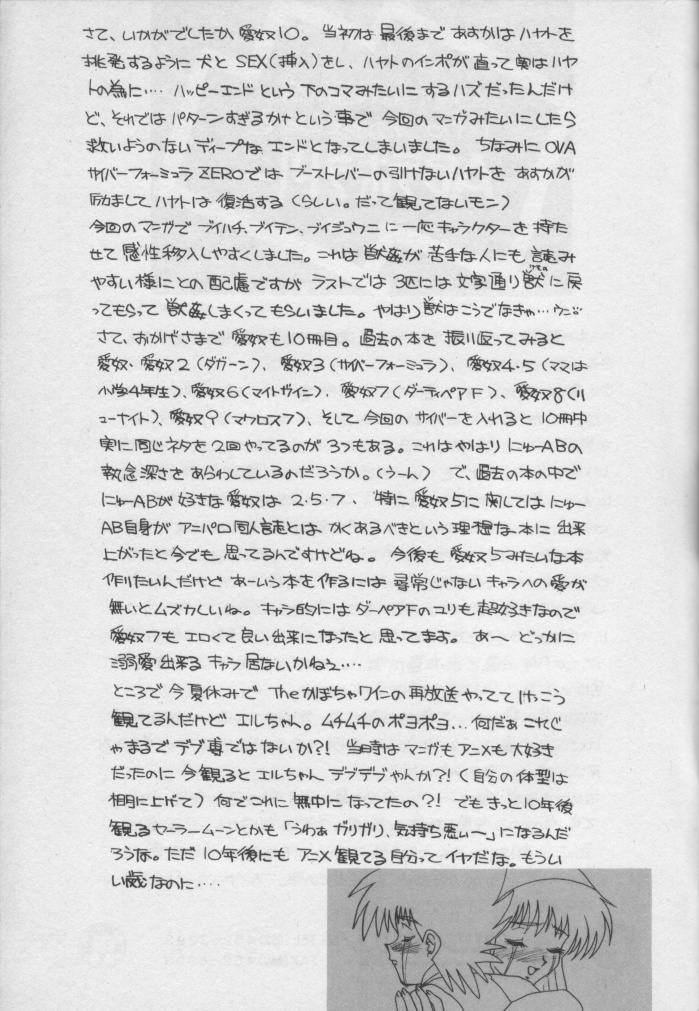 さて、いかがでしたか 愛奴10。当初は 最後まで あすかは ハヤトを
挑発するように 犬と SEX(挿入)をし、ハヤトのインポが 直って 実は ハヤ
トの為に‥‥ ハッピーエンド という 下のコマみたいに するハズ だったんだけ
ど、それでは パターンすぎるかナ という 事で 今回の マンガみたいにしたら
救いようのない ディープな エンドとなってしまいました。ちなみに OVA
サイバーフォーミュラ ZEROでは ブーストレバーの引けないハヤトを あすかが
励まして ハヤトは 復活する (らしい。だって 観てないモン)
今回の マンガで ブイハチ、ブイテン、ブイジュウニ に 一応 キャラクターを 持た
せて 感性移入しやすくしました。これは 獣姦が 苦手な人にも 読み
やすい様に との 配慮ですが ラストでは 3匹には 文字通り 獣 に 戻
ってもらって 獣姦しまくって もらいました。やはり 獣は こうでなきゃ…
さて、おかげさまで 愛奴も 10冊目。過去の本を 振り返ってみると
愛奴・愛奴2(ダガーン)、愛奴3(サイバーフォーミュラ)、愛奴4・5(ママは
小学4年生)、愛奴6(マイトガイン)、愛奴7(ダーティペアF)、愛奴8(リ
ューナイト)、愛奴9(マクロス7)、そして 今回の サイバーを 入れると 10冊中
実に 同じネタを 2回 やってるのが 3つもある。これは やはり にゅーABの
執念深さを あらわしているのだろうか。(うーん) で、過去の本の中で
にゅーABが 好きな 愛奴は 2・5・7、特に 愛奴5に 関しては にゅー
AB自身が アニパロ同人誌とは かくあるべき という 理想な 本に 出来
上がったと 今でも 思ってるんですけどね。今後も 愛奴5みたいな本
作りたいんだけど あーいう本を作るには 尋常じゃない キャラへの愛が
無いと ムズカしいね。キャラ的には ダーペアFの ユリも 超好きなので
愛奴7も エロくて 良い出来に なったと 思ってます。あ〜 どっかに
溺愛出来る キャラ 居ないかねぇ‥‥
ところで 今 夏休みで Theかぼちゃワインの 再放送 やってて けっこう
観てるんだけど エルちゃん。ムチムチの ポヨポヨ… 何だぁ これじ
ゃまるで デブ専ではないか?! 当時は マンガも アニメも 大好き
だったのに 今観ると エルちゃん デブデブやんか?! (自分の体型は
棚に上げて) 何でこれに 無中になってたの?! でも きっと 10年後
観る セーラームーンとかも 「うわぁ ガリガリ、気持ち悪ぃ〜」になるんだ
ろうな。ただ 10年後にも アニメ 観てる 自分って イヤだな。もうい
い歳なのに‥‥